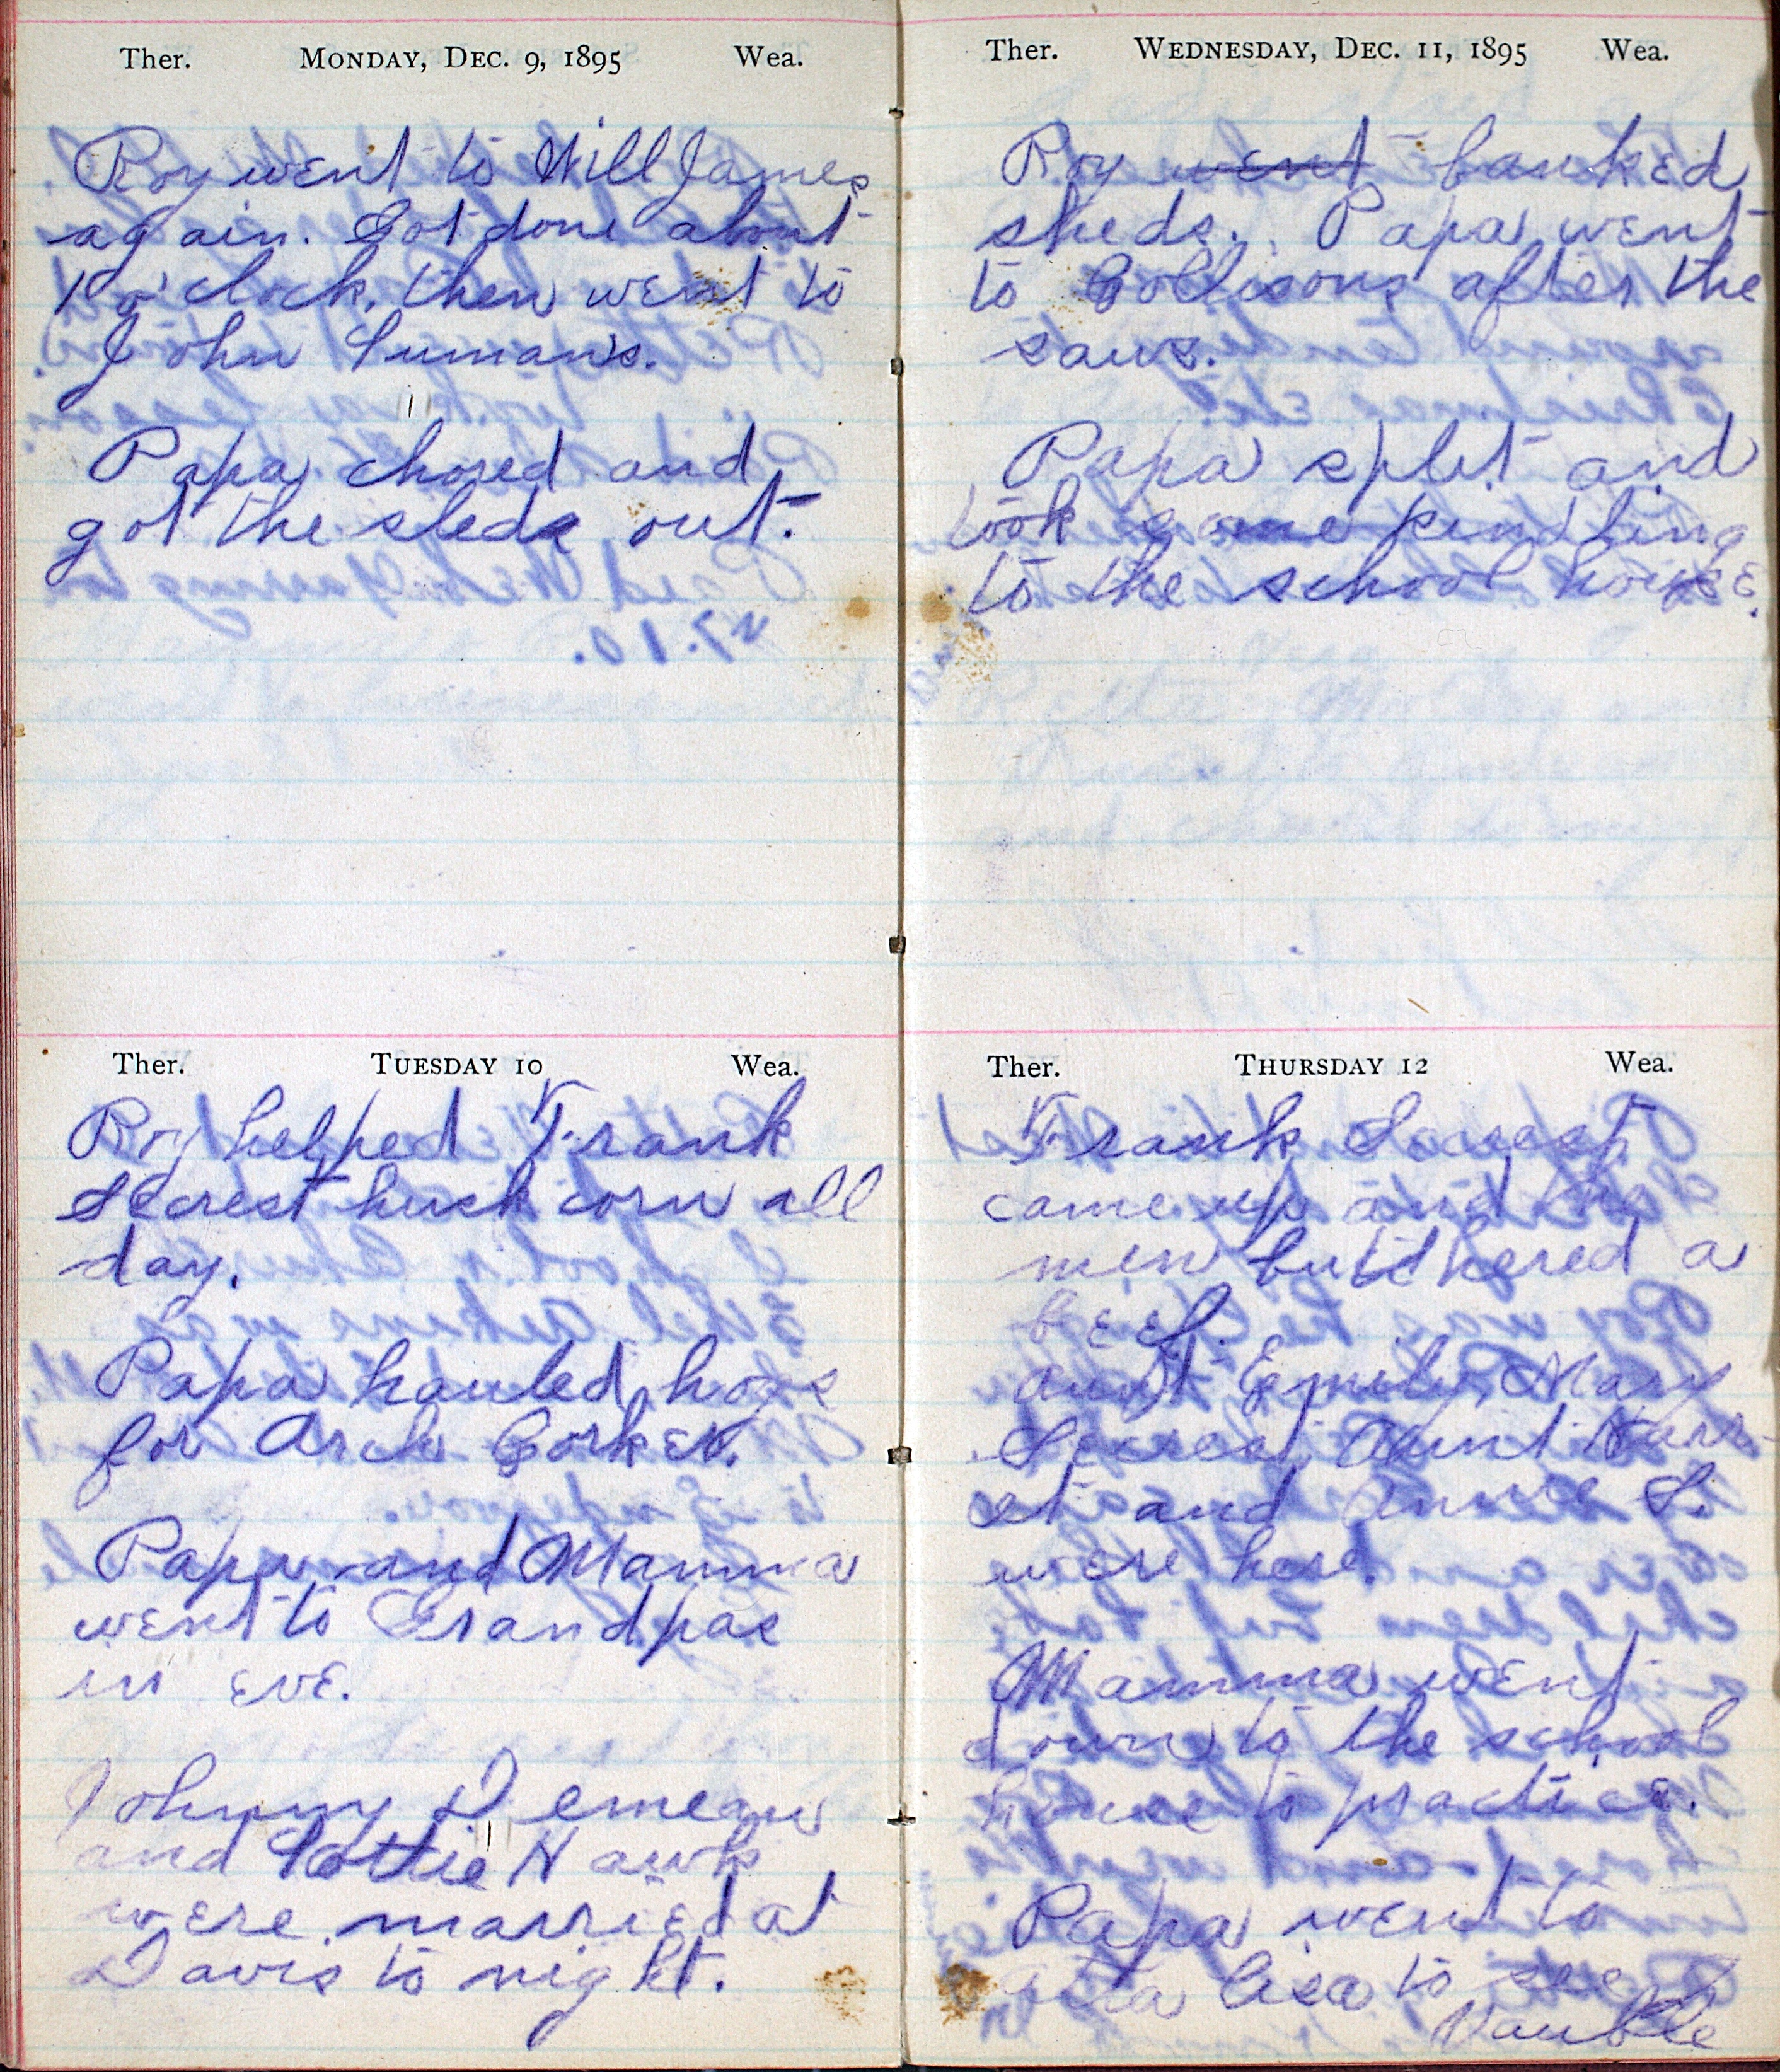 Ther. MONDAY, DEC. 9, 1895 Wea.
Roy went to Will James
again. Got done about
1 o'clock, then went to
John Lumans.
Papa chored and
got the sleds out.
Ther. TUESDAY 10 Wea.
Roy helped Frank
Secrest husk corn all
day.
Papa hauled hogs
for Arch Corken.
Papa and Mamma
went to Grandpas
in eve.
Johnny Demean
and Lottie Hawk
were married at
Davis to night.
Ther. WEDNESDAY, DEC. 11, 1895 Wea.
Roy went banked
sheds. Papa went
to Collisons after the
saws.
Papa split and
took some kindling
to the school house.
Ther. THURSDAY 12 Wea.
Frank Secrest
came up and the
men butchered a
beef.
Aunt Emily, Mary
Secrest, Aunt Harr-
et and Annie S.
were here.
Mamma went
down to the school
house to practice.
Papa went to
to see
Vauble